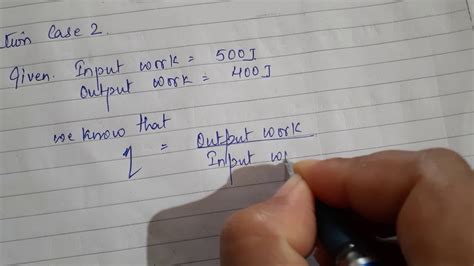 tion Case 2.
Given. Input work = 500J
Output work = 400J
we know that
η = Output work
Input w